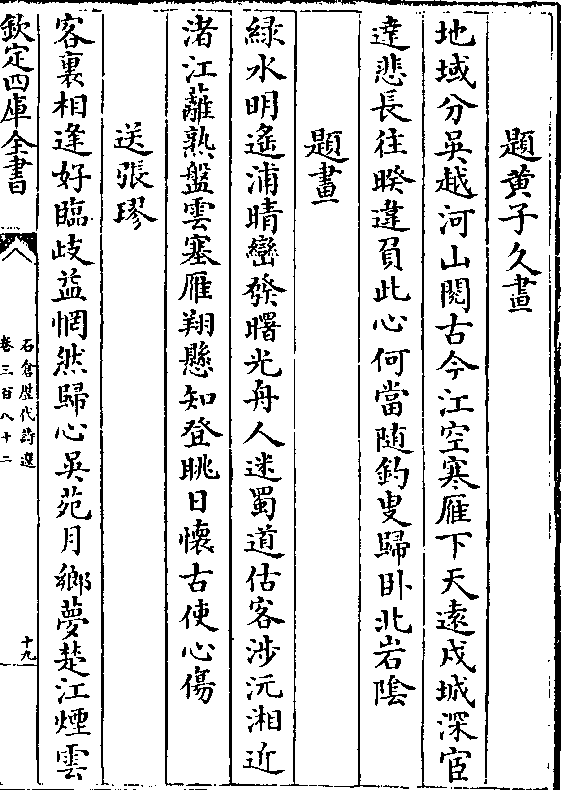 題黄子久畫
地域分吳越河山閱古今江空寒雁下天遠戍城深宦
達悲長往暌違負此心何當随釣叟歸卧北岩隂
題畫
緑水明遙浦晴巒發曙光舟人迷蜀道估客涉沅湘近
渚江蘺熟盤雲塞雁翔懸知登眺日懷古使心傷
送張璆
客裏相逢好臨歧益惘然歸心吳苑月鄉夢楚江煙雲
欽定四庫全書
石倉歴代詩選
卷三百八十二
十九